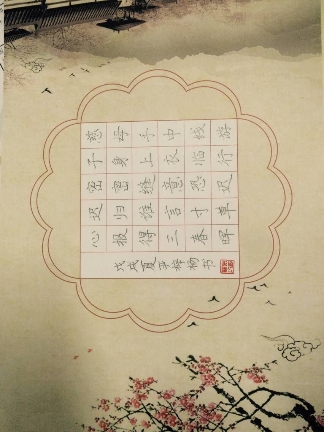 慈母手中线游
子身上衣临行
密密缝意恐迟
迟归谁言寸草
心报得三春晖
戊戌夏 书